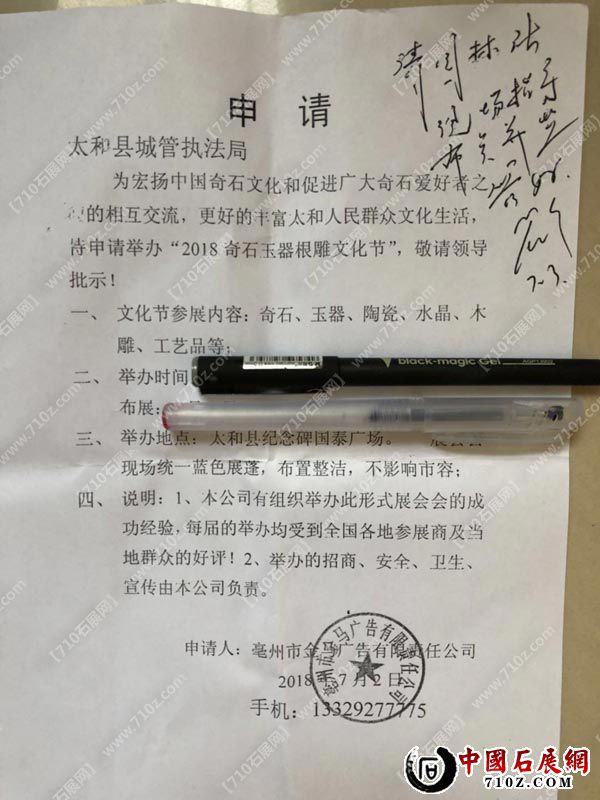 申 请
太和县城管执法局
为宏扬中国奇石文化和促进广大奇石爱好者之
的相互交流，更好的丰富太和人民群众文化生活，
待申请举办“2018奇石玉器根雕文化节”，敬请领导
批示！
一、 文化节参展内容：奇石、玉器、陶瓷、水晶、木
雕、工艺品等；
二、 举办时间
black-magic Gel
布展：
三、 举办地点：太和县纪念碑国泰广场。
现场统一蓝色展蓬，布置整洁，不影响市容；
四、 说明：1、本公司有组织举办此形式展会会的成
功经验，每届的举办均受到全国各地参展商及当
地群众的好评！2、举办的招商、安全、卫生、
宣传由本公司负责。
申请人：亳州市金马广告有限责任公司
2018 7月2日
手机：13329277775
亳州市金马广告有限责任公司
7.3.
中國石展網
710Z.COM
【710石展网】
www.710z.com